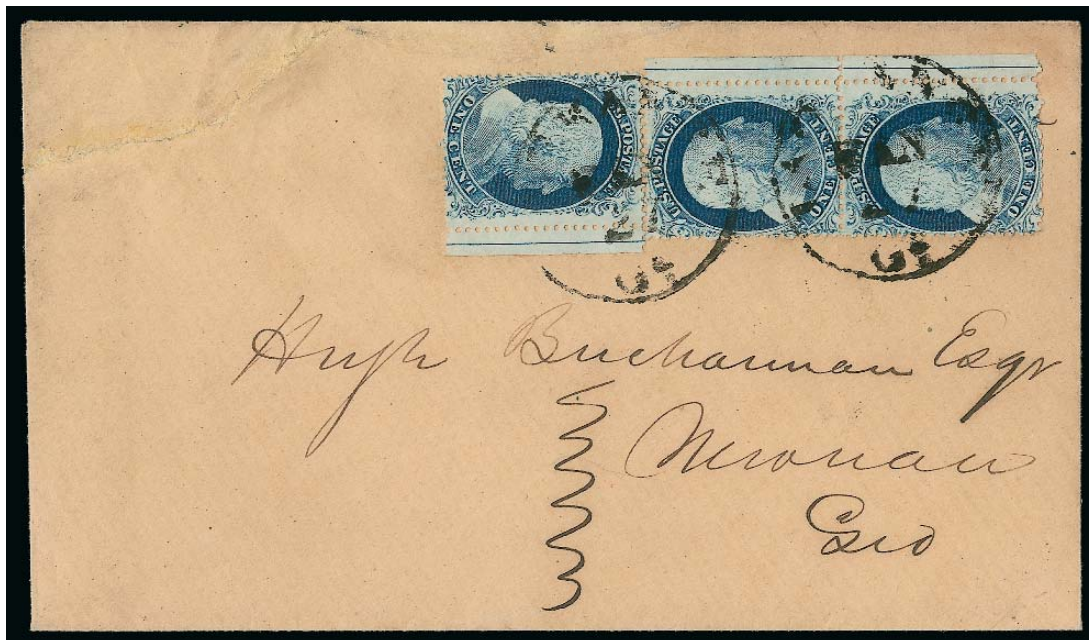 U.S. POSTAGE
ONE CENT
U.S. POSTAGE
ONE CENT
U.S. POSTAGE
ONE CENT
Hugh Buchannan Esqr
Newnan
Geo